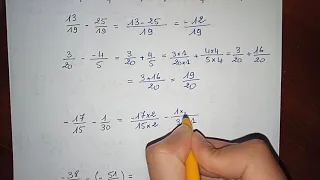 13/19 - 25/19 = 13-25/19 = -12/19
3/20 - -4/5 = 3/20 + 4/5 = 3×1/20×1 + 4×4/5×4 = 3/20 + 16/20
= 3+16/20 = 19/20
-17/15 - 1/30 = -17×2/15×2 - 1×
-38 - (-51) =